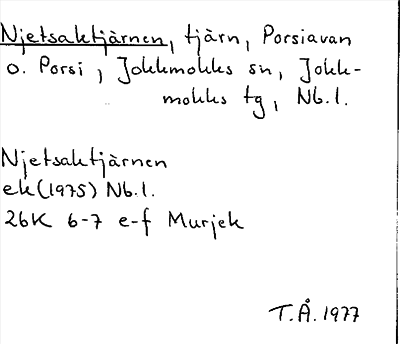 Njetsaktjärnen, tjärn, Porsiavan
o. Porsi, Jokkmokks sn, Jokk-
mokks tg, Nb.l.
Njetsaktjärnen
ek (1975) Nb.l.
26K 6-7 e-f Murjek
T.Å. 1977